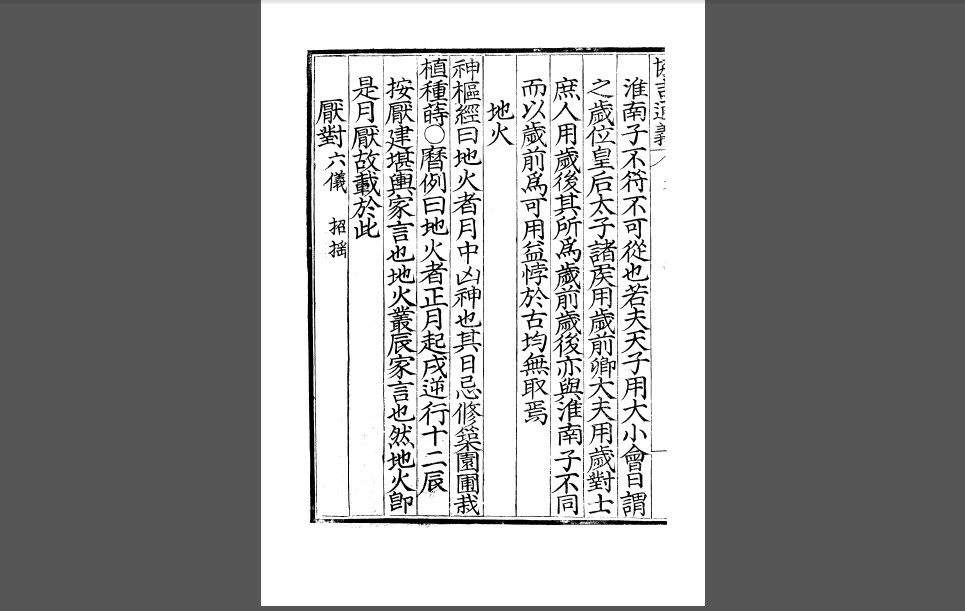 淮南子不符不可從也若夫天子用大小會日謂
之歲位皇后太子諸侯用歲前卿大夫用歲對士
庶人用歲後其所爲歲前歲後亦與淮南子不同
而以歲前爲可用益悖於古均無取焉
地火
神樞經曰地火者月中凶神也其日忌修築園圃栽
植種蒔○曆例曰地火者正月起戌逆行十二辰
按厭建堪輿家言也地火叢辰家言也然地火卽
是月厭故載於此
厭對 六儀 招摇